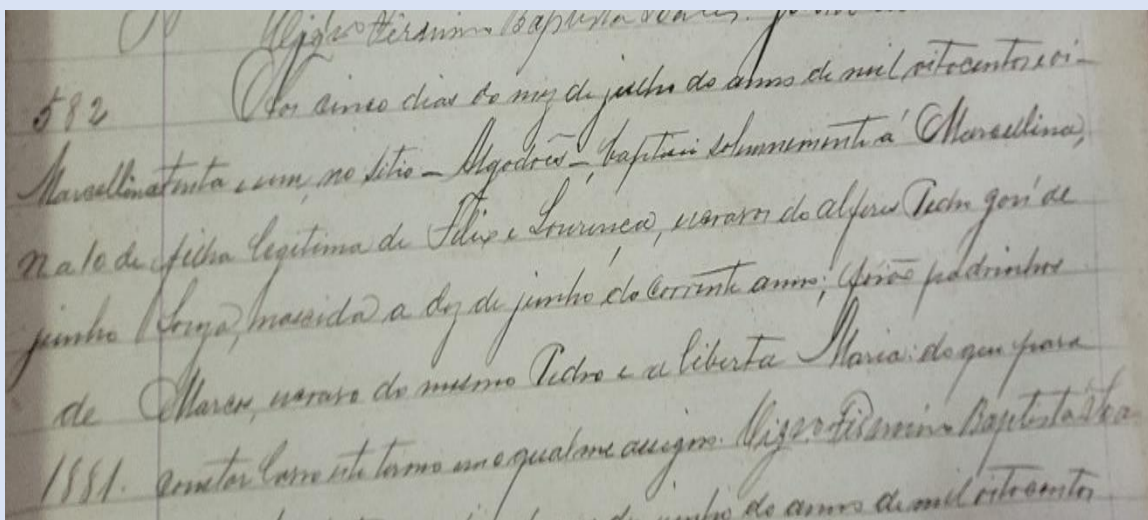 Vigrº Firmino Baptista Soares.
582 Aos cinco dias do mez de julho do anno de mil oitocentos e oi-
Marcellina tenta e um, no sitio - Algodões -, baptisei solemnemente á Marcellina,
n a 10 de filha legitima de Felix e Lourença, escravos do alferes Pedro José de
junho Souza, nascida a dez de junho do corrente anno; forão padrinhos
de Marcos, escravo do mesmo Pedro e a liberta Maria: do que para
1881. constar lavro este termo em o qual me assigno. Vigrº Firmino Baptista Soa
de junho do anno de mil oitocentos